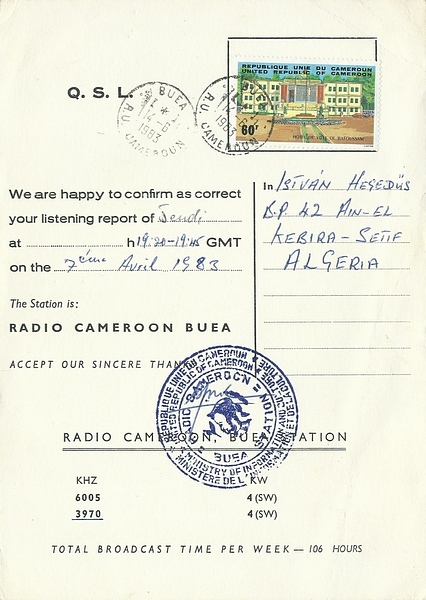 REPUBLIQUE UNIE DU CAMEROUN
UNITED REPUBLIC OF CAMEROON
60F
Q. S. L.
BUEA
14-6
1983
R.U. CAMEROUN
BUEA
14-6
1983
R.U. CAMEROUN
We are happy to confirm as correct
your listening report of Jeudi
at h 19:20-19:45 GMT
on the 7ème Avril 1983
The Station is:
RADIO CAMEROON BUEA
ACCEPT OUR SINCERE THAN
In ISTVÁN HEGEDÜS
B.P. 42 AIN-EL
KEBIRA-SETIF
ALGERIA
REPUBLIQUE UNIE DU CAMEROUN
UNITED REPUBLIC OF CAMEROON
RADIO CAMEROON
BUEA STATION
MINISTRY OF INFORMATION AND CULTURE
MINISTERE DE L'INFORMATION ET DE LA CULTURE
RADIO CAMEROON, BUEA STATION
KHZ KW
6005 4 (SW)
3970 4 (SW)
TOTAL BROADCAST TIME PER WEEK — 106 HOURS